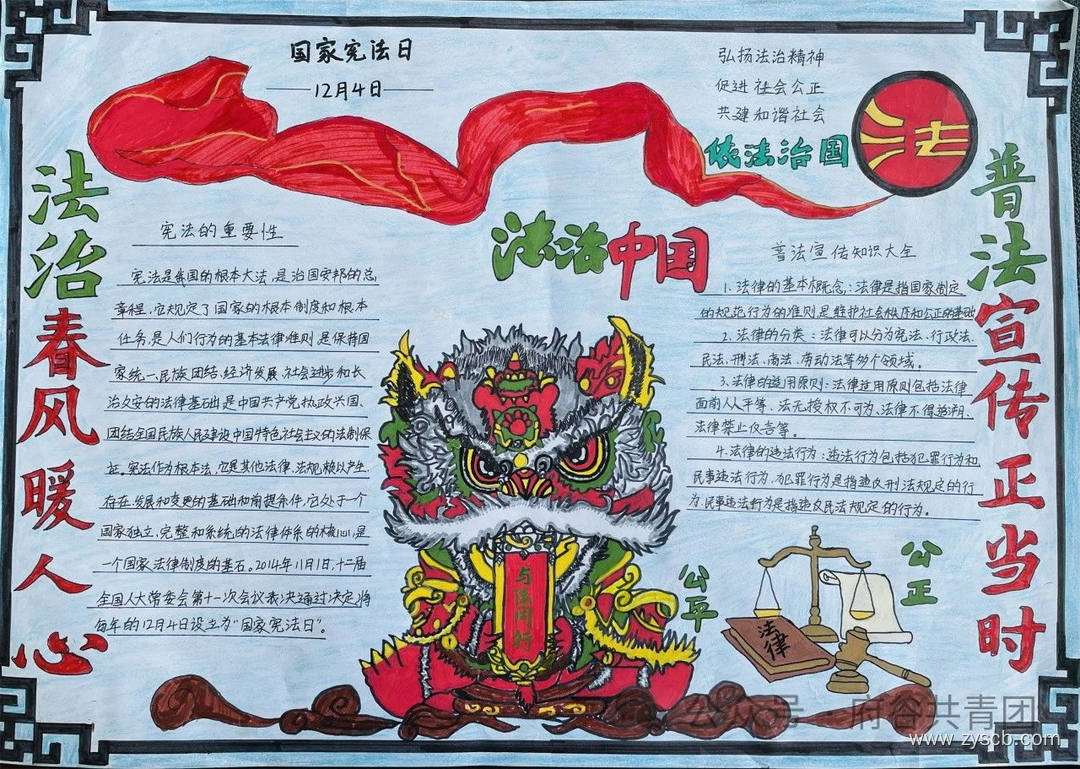 国家宪法日
12月4日
弘扬法治精神
促进社会公正
共建和谐社会
依法治国
法
法治春风暖人心
普法宣传正当时
法治中国
宪法的重要性
宪法是我国的根本大法,是治国安邦的总
章程,它规定了国家的根本制度和根本
任务,是人们行为的基本法律准则,是保持国
家统一、民族团结、经济发展、社会进步和长
治久安的法律基础是中国共产党执政兴国、
团结全国民族人民建设中国特色社会主义的法制保
证。宪法作为根本法,它是其他法律、法规赖以产生、
存在、发展和变更的基础和前提条件,它处于一个
国家独立、完整和系统的法律体系的核心,是
一个国家法律制度的基石。2014年11月1日,十二届
全国人大常委会第十一次会议表决通过决定,将
每年的12月4日设立为“国家宪法日”。
普法宣传知识大全
1.法律的基本概念:法律是指国家制定
的规范行为的准则是维护社会秩序和公正的基础
2.法律的分类:法律可以分为宪法、行政法、
民法、刑法、商法、劳动法等多个领域。
3.法律的适用原则:法律适用原则包括法律
面前人人平等、法无授权不可为、法律不得追溯、
法律禁止仅告等。
4.法律的违法行为:违法行为包括犯罪行为和
民事违法行为,犯罪行为是指违反刑法规定的行
为,民事违法行为是指违反民法规定的行为。
与法同行
公平
公正
法律
公众号·府谷共青团
www.zyscb.com